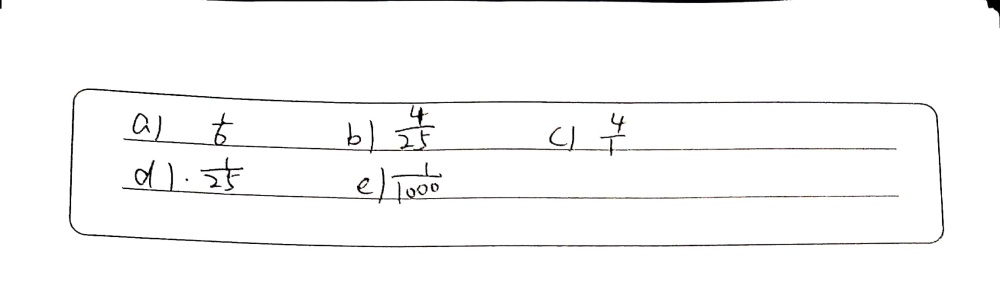 a) 1/6 b) 4/25 c) 4/1
d). 1/25 e) 1/1000